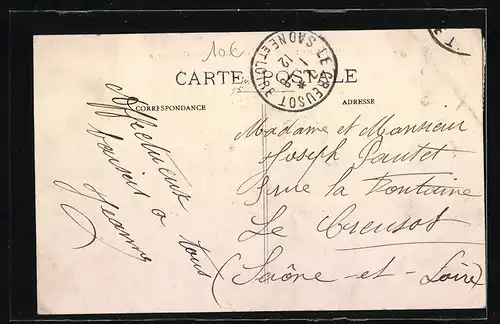 10€
CARTE POSTALE
CORRESPONDANCE
ADRESSE
LE CREUSOT
SAONE ET LOIRE
Affectueux
baisers à tous
Jeanne
Madame et Monsieur
Joseph Pautet
rue la Fontaine
Le Creusot
(Saône-et-Loire)